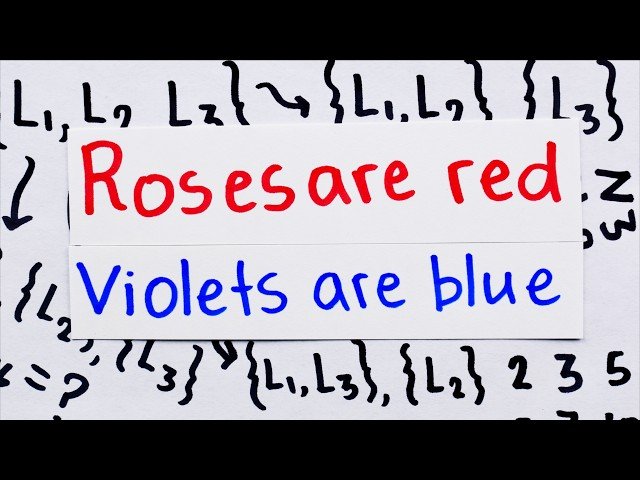 {L₁, L₂ L₃} {L₁, L₂} {L₃}
Roses are red
Violets are blue
{L₂, {L₃} {L₁, L₃}, {L₂} 2 3 5
= ?